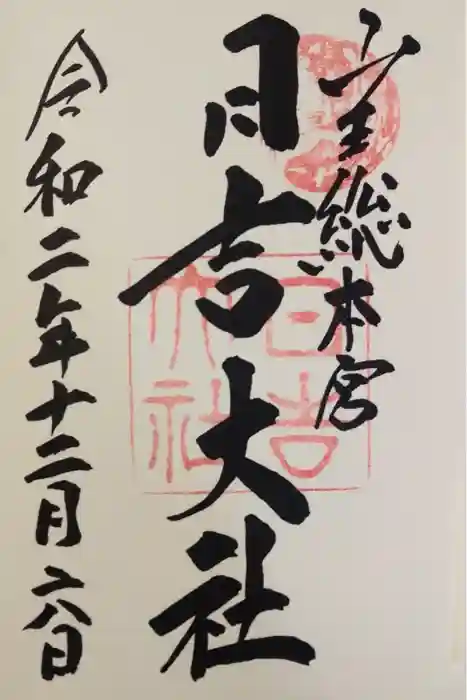 山王総本宮
日吉大社
令和二年十二月二八日
日吉
大社